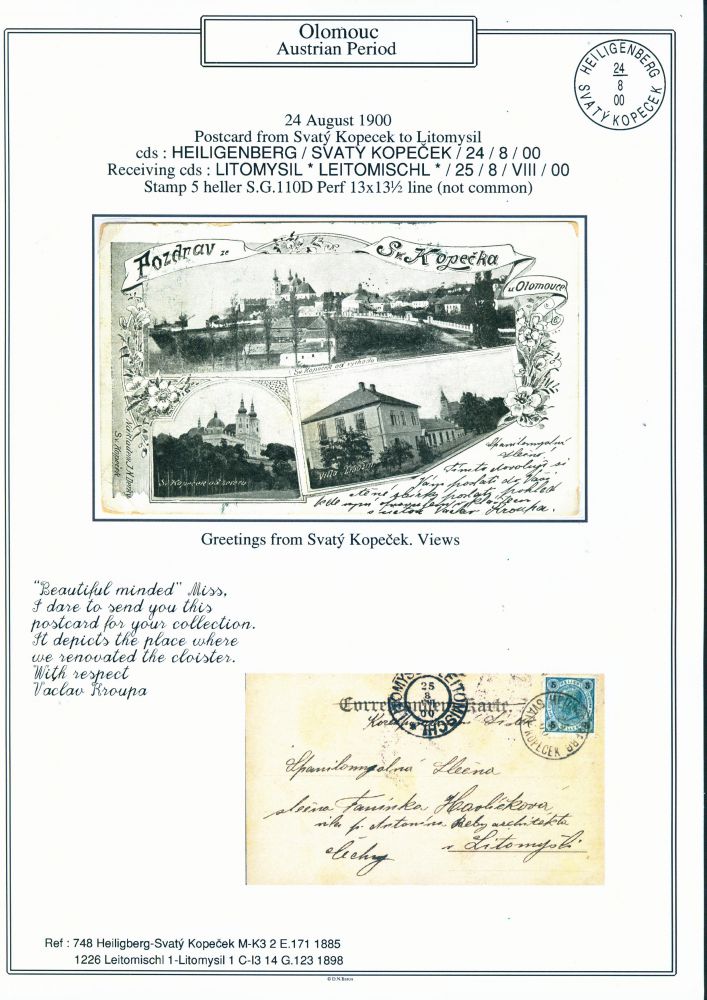 Olomouc
Austrian Period
HEILIGENBERG
24
8
00
SVATÝ KOPEČEK
24 August 1900
Postcard from Svatý Kopecek to Litomysil
cds : HEILIGENBERG / SVATÝ KOPEČEK / 24 / 8 / 00
Receiving cds : LITOMYSIL * LEITOMISCHL * / 25 / 8 / VIII / 00
Stamp 5 heller S.G.110D Perf 13x13½ line (not common)
Pozdrav ze
Sv. Kopečka
u Olomouce
Sv. Kopeček od východu
Sv. Kopeček od severu
Villa
Spanilomyslná
slečno,
Tímto dovoluji si
Vám poslati do Vaší
sbírky pohled
Václav Kroupa.
Greetings from Svatý Kopeček. Views
"Beautiful minded" Miss,
I dare to send you this
postcard for your collection.
It depicts the place where
we renovated the cloister.
With respect
Vaclav Kroupa
LEITOMISCHL
25
8
00
Karte.
5 5
KOPEČEK
Spanilomyslná Slečna
slečna Faninka Havlíčková
Antonína architekta
v Litomyšli
Čechy
Ref : 748 Heiligberg-Svatý Kopeček M-K3 2 E.171 1885
1226 Leitomischl 1-Litomysil 1 C-I3 14 G.123 1898
© D.N.Baron